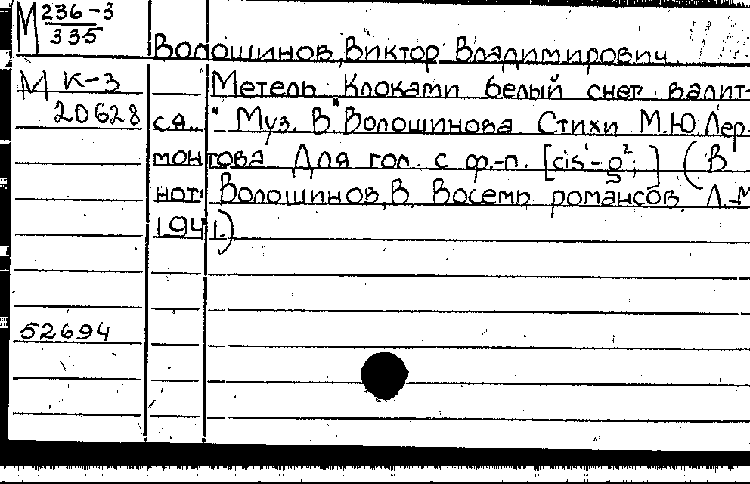 М 236-3
335
Волошинов, Виктор Владимирович
М К-3
20628
Метель Клоками белый снег валит-
ся..." Муз. В. Волошинова Стихи М.Ю.Лер-
монтова Для гол. с ф.-п. [cis¹-g²; ] (В
нот: Волошинов, В. Восемь романсов. Л.-М
1941.)
52694